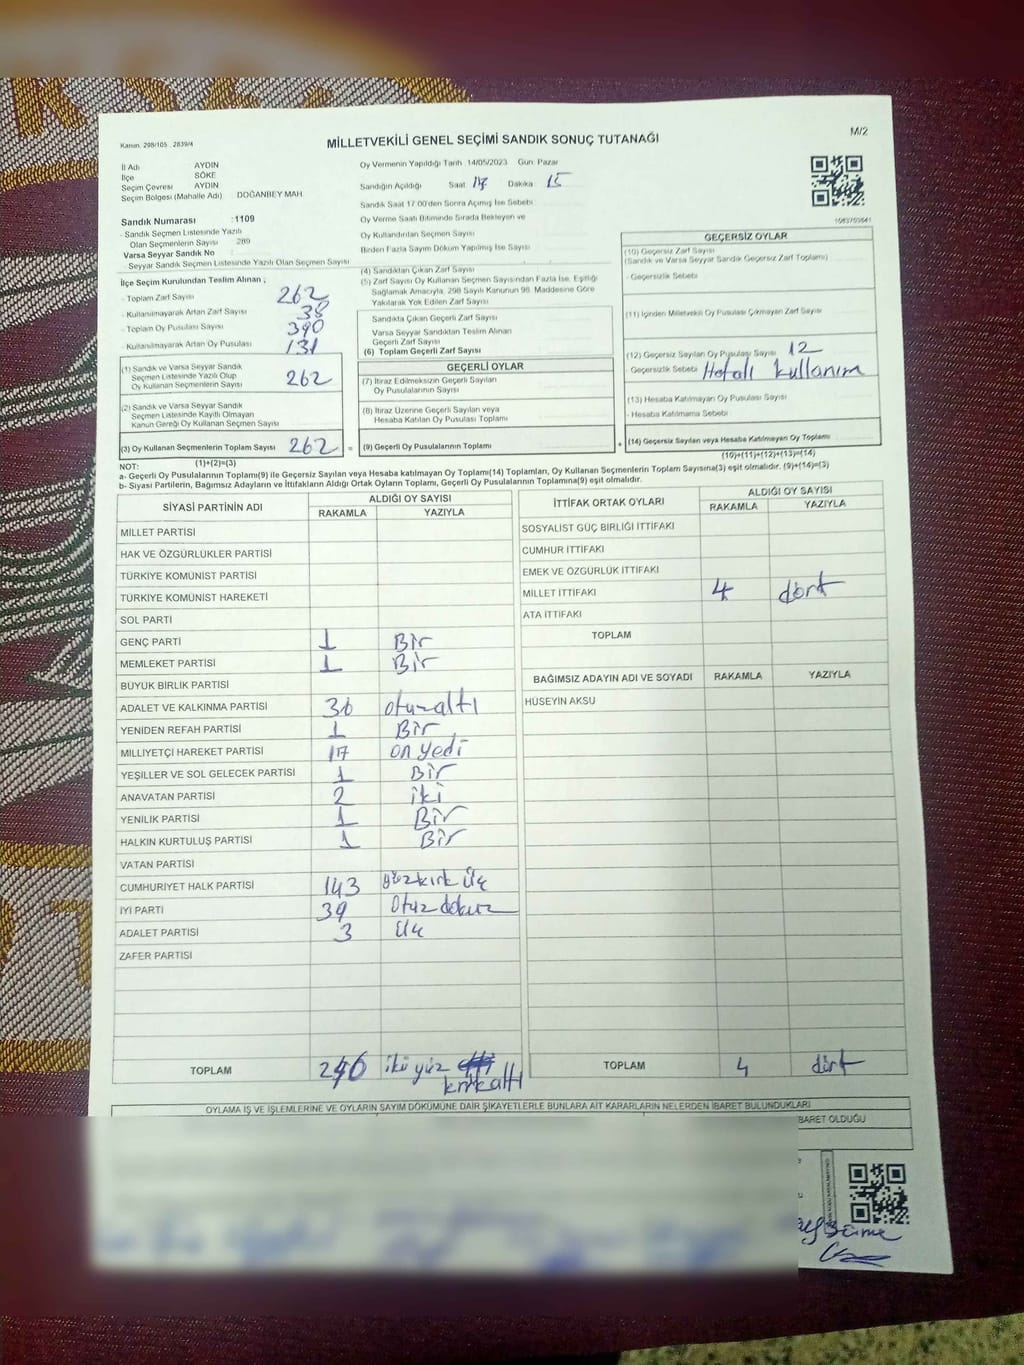 Kanun. 298/105 . 2839/4
MİLLETVEKİLİ GENEL SEÇİMİ SANDIK SONUÇ TUTANAĞI
M/2
İl Adı AYDIN
İlçe SÖKE
Seçim Çevresi AYDIN
Seçim Bölgesi (Mahalle Adı) DOĞANBEY MAH.
Sandık Numarası :1109
- Sandık Seçmen Listesinde Yazılı
Olan Seçmenlerin Sayısı : 289
Varsa Seyyar Sandık No :
- Seyyar Seçmen Listesinde Yazılı Olan Seçmen Sayısı
Oy Vermenin Yapıldığı Tarih 14/05/2023 Gün: Pazar
Sandığın Açıldığı Saat 17 Dakika 15
Sandık Saat 17:00'den Sonra Açımış İse Sebebi
Oy Verme Saati Bitiminde Sırada Bekleyen ve
Oy Kullandırılan Seçmen Sayısı
Birden Fazla Sayım Döküm Yapılmış İse Sayısı
İlçe Seçim Kurulundan Teslim Alınan ;
- Toplam Zarf Sayısı 262
- Kullanılmayarak Artan Zarf Sayısı 38
- Toplam Oy Pusulası Sayısı 390
- Kullanılmayarak Artan Oy Pusulası 131
(1) Sandık ve Varsa Seyyar Sandık
Seçmen Listesinde Yazılı Olup
Oy Kullanan Seçmenlerin Sayısı 262
(2) Sandık ve Varsa Seyyar Sandık
Seçmen Listesinde Kayıtlı Olmayan
Kanun Gereği Oy Kullanan Seçmen Sayısı
(3) Oy Kullanan Seçmenlerin Toplam Sayısı 262 =
(1)+(2)=(3)
(4) Sandıktan Çıkan Zarf Sayısı
(5) Zarf Sayısı Oy Kullanan Seçmen Sayısından Fazla İse, Eşitliği
Sağlamak Amacıyla, 298 Sayılı Kanunun 98. Maddesine Göre
Yakılarak Yok Edilen Zarf Sayısı
Sandıkta Çıkan Geçerli Zarf Sayısı
Varsa Seyyar Sandıktan Teslim Alınan
Geçerli Zarf Sayısı
(6) Toplam Geçerli Zarf Sayısı
GEÇERLİ OYLAR
(7) İtiraz Edilmeksizin Geçerli Sayılan
Oy Pusulalarının Sayısı
(8) İtiraz Üzerine Geçerli Sayılan veya
Hesaba Katılan Oy Pusulası Toplamı
(9) Geçerli Oy Pusulalarının Toplamı +
1083759841
GEÇERSİZ OYLAR
(10) Geçersiz Zarf Sayısı
(Sandık ve Varsa Seyyar Sandık Geçersiz Zarf Toplamı)
- Geçersizlik Sebebi
(11) İçinden Milletvekili Oy Pusulası Çıkmayan Zarf Sayısı
(12) Geçersiz Sayılan Oy Pusulası Sayısı 12
- Geçersizlik Sebebi Hatalı kullanım
(13) Hesaba Katılmayan Oy Pusulası Sayısı
- Hesaba Katılmama Sebebi
(14) Geçersiz Sayılan veya Hesaba Katılmayan Oy Toplamı
(10)+(11)+(12)+(13)=(14)
NOT:
a- Geçerli Oy Pusulalarının Toplamı(9) ile Geçersiz Sayılan veya Hesaba katılmayan Oy Toplamı(14) Toplamları, Oy Kullanan Seçmenlerin Toplam Sayısına(3) eşit olmalıdır. (9)+(14)=(3)
b- Siyasi Partilerin, Bağımsız Adayların ve İttifakların Aldığı Ortak Oyların Toplamı, Geçerli Oy Pusulalarının Toplamına(9) eşit olmalıdır.
SİYASİ PARTİNİN ADI ALDIĞI OY SAYISI
RAKAMLA YAZIYLA
MİLLET PARTİSİ
HAK VE ÖZGÜRLÜKLER PARTİSİ
TÜRKİYE KOMÜNİST PARTİSİ
TÜRKİYE KOMÜNİST HAREKETİ
SOL PARTİ
GENÇ PARTİ 1 Bir
MEMLEKET PARTİSİ 1 Bir
BÜYÜK BİRLİK PARTİSİ
ADALET VE KALKINMA PARTİSİ 36 otuzaltı
YENİDEN REFAH PARTİSİ 1 Bir
MİLLİYETÇİ HAREKET PARTİSİ 17 on yedi
YEŞİLLER VE SOL GELECEK PARTİSİ 1 Bir
ANAVATAN PARTİSİ 2 iki
YENİLİK PARTİSİ 1 Bir
HALKIN KURTULUŞ PARTİSİ 1 Bir
VATAN PARTİSİ
CUMHURİYET HALK PARTİSİ 143 yüzkırk üç
İYİ PARTİ 39 Otuz dokuz
ADALET PARTİSİ 3 üç
ZAFER PARTİSİ
TOPLAM 246 iki yüz
kırkaltı
İTTİFAK ORTAK OYLARI ALDIĞI OY SAYISI
RAKAMLA YAZIYLA
SOSYALİST GÜÇ BİRLİĞİ İTTİFAKI
CUMHUR İTTİFAKI
EMEK VE ÖZGÜRLÜK İTTİFAKI
MİLLET İTTİFAKI 4 dört
ATA İTTİFAKI
TOPLAM
BAĞIMSIZ ADAYIN ADI VE SOYADI RAKAMLA YAZIYLA
HÜSEYİN AKSU
TOPLAM 4 dört
OYLAMA İŞ VE İŞLEMLERİNE VE OYLARIN SAYIM DÖKÜMÜNE DAİR ŞİKAYETLERLE BUNLARA AİT KARARLARIN NELERDEN İBARET BULUNDUKLARI
BARET OLDUĞU